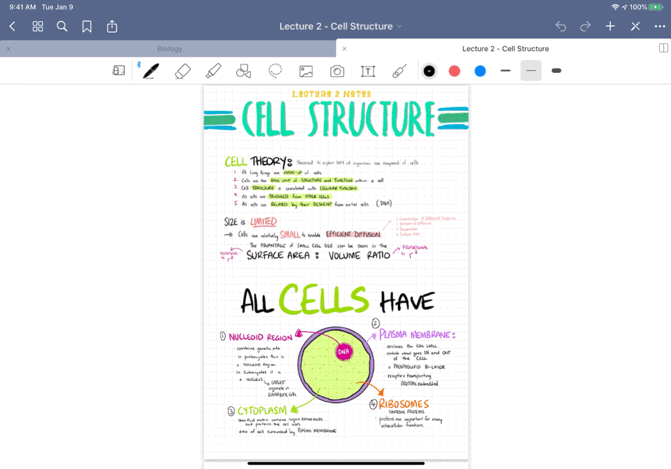 9:41 AM Tue Jan 9
100%
Lecture 2 - Cell Structure
Biology
Lecture 2 - Cell Structure
LECTURE 2 NOTES
CELL STRUCTURE
CELL THEORY: Theorized to explain how all organisms are composed of cells
1. All living things are MADE-UP of cells
2. Cells are the BASIC UNIT OF STRUCTURE AND FUNCTION within a cell
3. Cell STRUCTURE is correlated with CELLULAR FUNCTION
4. All cells are PRODUCED FROM OTHER CELLS
5. All cells are RELATED by their DESCENT from earlier cells (DNA)
SIZE is LIMITED
→ Cells are relatively SMALL to enable EFFICIENT DIFFUSION
4. Surface Area
The ADVANTAGE OF SMALL CELL SIZE can be seen in the
SURFACE AREA : VOLUME RATIO
ALL CELLS HAVE
1 NUCLEOID REGION
contains genetic info
in prokaryotes this is
a NUCLEOID REGION
in Eukaryotes it is
a NUCLEUS
LARGEST
organelle in
DNA
2
PLASMA MEMBRANE:
encloses the cell
what goes IN and OUT
of the CELL
a PHOSPHOLIPID BI-LAYER
receptors transporting
PROTEINS embedded
3 CYTOPLASM
and proteins the cell uses
area of cell surrounded by PLASMA MEMBRANE
4 RIBOSOMES
PROTEINS
proteins are important for many
intracellular functions